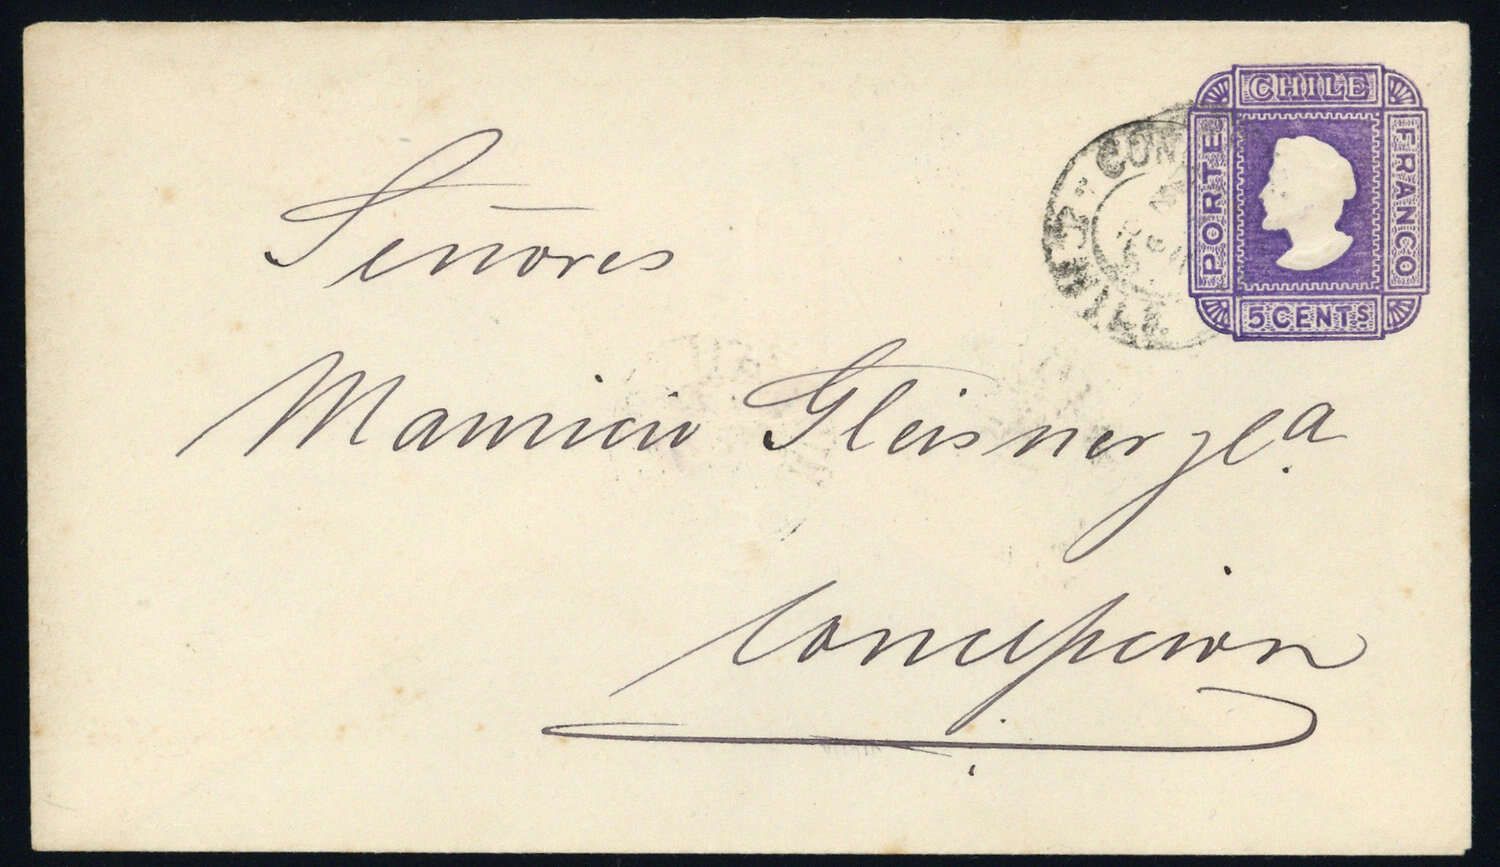 CHILE
PORTE
FRANCO
5 CENTS
Señores
Mauricio Gleisner y Ca.
Concepcion